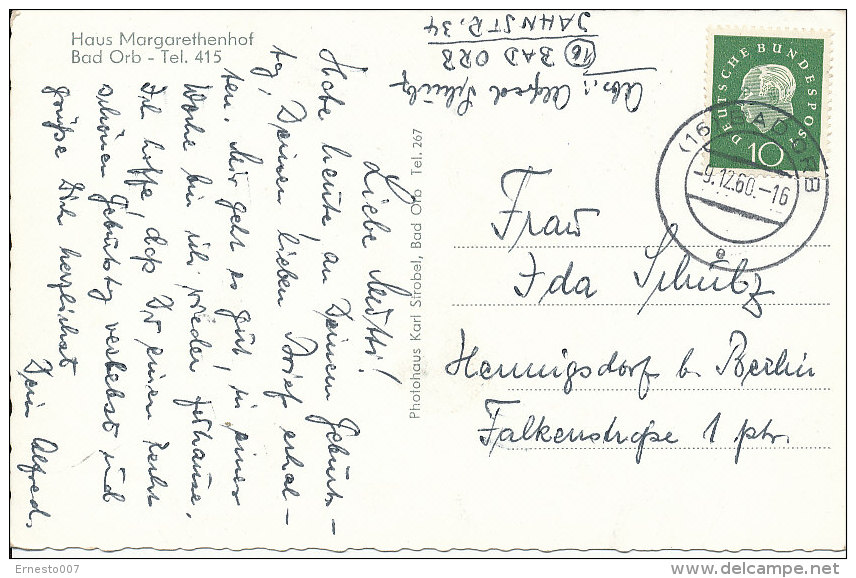 Haus Margarethenhof
Bad Orb - Tel. 415
Abs.: Alfred Schulz
(16) BAD ORB
JAHNSTR. 34
DEUTSCHE BUNDESPOST
10
(16) BAD ORB
-9.12.60.-16
e
Liebe Mutti!
Habe heute, an Deinem Geburts-
tag, Deinen lieben Brief erhal-
ten. Mir geht es gut, in einer
Woche bin ich wieder zuhause.
Ich hoffe, daß Du einen recht
schönen Geburtstg verlebst und
grüße Dich herzlichst
Dein Alfred.
Photohaus Karl Strobel, Bad Orb Tel. 267
Frau
Ida Schulz
Hennigsdorf b. Berlin
Falkenstraße 1 ptr.
Ernesto007
delcampe.net